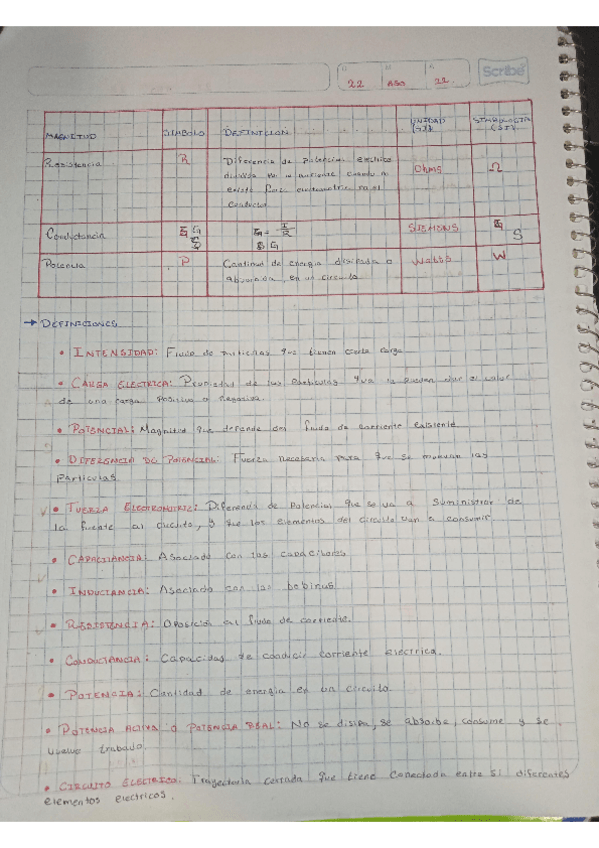 Scribe
22 AGO 22
MAGNITUD SIMBOLO DEFINICION UNIDAD SIMBOLOGIA
Resistencia R Diferencia de potencial electrico Ohms Ω
dividida en la corriente cuando no
existe fuerza electromotriz en el
conductor
Conductancia G G = I/R SIEMENS S
Potencia P Cantidad de energia disipada o Watts W
absorbida, en un circuito
→ DEFINICIONES
• INTENSIDAD: Flujo de particulas que tienen cierta carga
• CARGA ELECTRICA: Propiedad de las particulas que
de una carga Positiva o Negativa.
• POTENCIAL: Magnitud que depende del flujo de corriente existente
• DIFERENCIA DE POTENCIAL: Fuerza necesaria para que se muevan las
particulas.
• FUERZA ELECTROMOTRIZ: Diferencia de Potencial que se va a suministrar de
la fuente al circuito, y que los elementos del circuito van a consumir.
• CAPACITANCIA: Asociado con los capacitores
• INDUCTANCIA: Asociado con las bobinas.
• RESISTENCIA: Oposición al flujo de corriente.
• CONDUCTANCIA: Capacidad de conducir corriente electrica.
• POTENCIA: Cantidad de energia en un circuito.
• POTENCIA ACTIVA O POTENCIA REAL: No se disipa, se absorbe, consume y se
vuelve trabajo.
• CIRCUITO ELECTRICO. Trayectoria cerrada que tiene conectada entre si diferentes
elementos electricos.